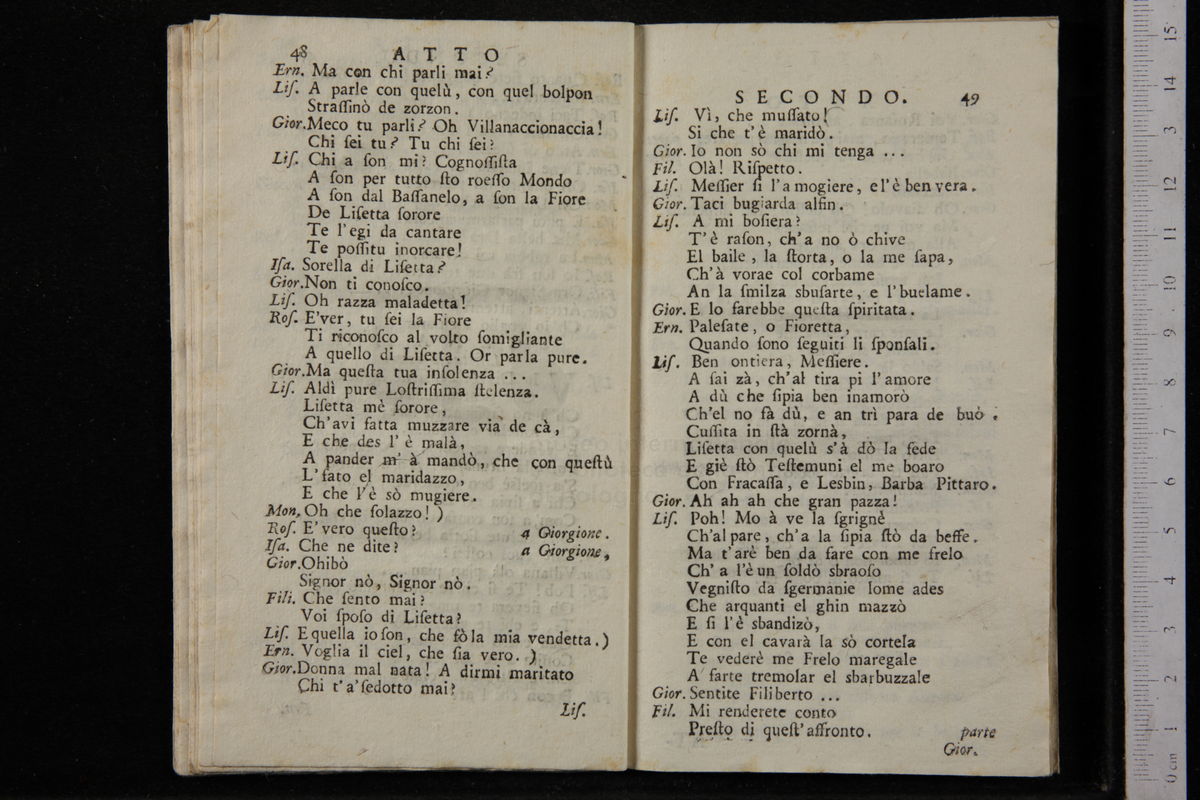 48 ATTO
Ern. Ma con chi parli mai?
Liſ. A parle con quelù, con quel bolpon
Straſſinò de zorzon.
Gior. Meco tu parli? Oh Villanaccionaccia!
Chi ſei tu? Tu chi ſei?
Liſ. Chi a ſon mi? Cognoſſiſta
A ſon per tutto ſto roeſſo Mondo
A ſon dal Baſſanelo, a ſon la Fiore
De Liſetta ſorore
Te l'egi da cantare
Te poſſitu inorcare!
Iſa. Sorella di Liſetta?
Gior. Non ti conoſco.
Liſ. Oh razza maladetta!
Roſ. E'ver, tu ſei la Fiore
Ti riconoſco al volto ſomigliante
A quello di Liſetta. Or parla pure.
Gior. Ma queſta tua inſolenza ...
Liſ. Aldì pure Loſtriſſima ſtelenza.
Liſetta mè ſorore,
Ch'avi fatta muzzare via de cà,
E che des l'è malà,
A pander m'à mandò, che con queſtù
L'fato el maridazzo,
E che l'è sò mugiere.
Mon. Oh che ſolazzo! )
Roſ. E'vero queſto? a Giorgione.
Iſa. Che ne dite? a Giorgione,
Gior. Ohibò
Signor nò, Signor nò.
Fili. Che ſento mai?
Voi ſpoſo di Liſetta?
Liſ. E quella io ſon, che fò la mia vendetta. )
Ern. Voglia il ciel, che ſia vero. )
Gior. Donna mal nata! A dirmi maritato
Chi t'a'ſedotto mai?
Liſ.
SECONDO. 49
Liſ. Vì, che muſſato!
Si che t'è maridò.
Gior. Io non sò chi mi tenga ...
Fil. Olà! Riſpetto.
Liſ. Meſſier ſi l'a mogiere, e l'è ben vera.
Gior. Taci bugiarda alfin.
Liſ. A mi boſiera?
T'è raſon, ch'a no ò chive
El baile, la ſtorta, o la me ſapa,
Ch'à vorae col corbame
An la ſmilza sbuſarte, e l'buelame.
Gior. E lo farebbe queſta ſpiritata.
Ern. Paleſate, o Fioretta,
Quando ſono ſeguiti li ſponſali.
Liſ. Ben ontiera, Meſſiere.
A ſai zà, ch'al tira pi l'amore
A dù che ſipia ben inamorò
Ch'el no fà dù, e an trì para de buò.
Cuſſita in ſtà zornà,
Liſetta con quelù s'à dò la fede
E giè ſtò Teſtemuni el me boaro
Con Fracaſſa, e Lesbin, Barba Pittaro.
Gior. Ah ah ah che gran pazza!
Liſ. Poh! Mo à ve la ſgrignè
Ch'al pare, ch'a la ſipia ſtò da beffe.
Ma t'arè ben da fare con me frelo
Ch'a l'è un ſoldò sbraoſo
Vegniſto da ſgermanie lome ades
Che arquanti el ghin mazzò
E ſi l'è sbandizò,
E con el cavarà la sò cortela
Te vederè me Frelo maregale
A'farte tremolar el sbarbuzzale
Gior. Sentite Filiberto ...
Fil. Mi renderete conto
Preſto di queſt'affronto. parte
Gior.